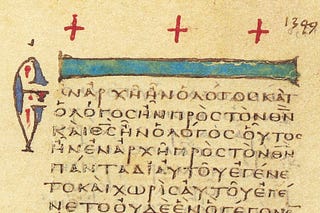 ΕΝΑΡΧΗΗΝΟΛΟΓΟϹΚΑΙ
ΟΛΟΓΟϹΗΝΠΡΟϹΤΟΝΘΝ
ΚΑΙΘϹΗΝΟΛΟΓΟϹΟΥΤΟϹ
ΗΝΕΝΑΡΧΗΠΡΟϹΤΟΝΘΝ
ΠΑΝΤΑΔΙΑΥΤΟΥΕΓΕΝΕ
ΤΟΚΑΙΧΩΡΙϹΑΥΤΟΥΕΓΕ
ΝΕΤΟΟΥΔΕΕΝΟΓΕΓΟΝΕ